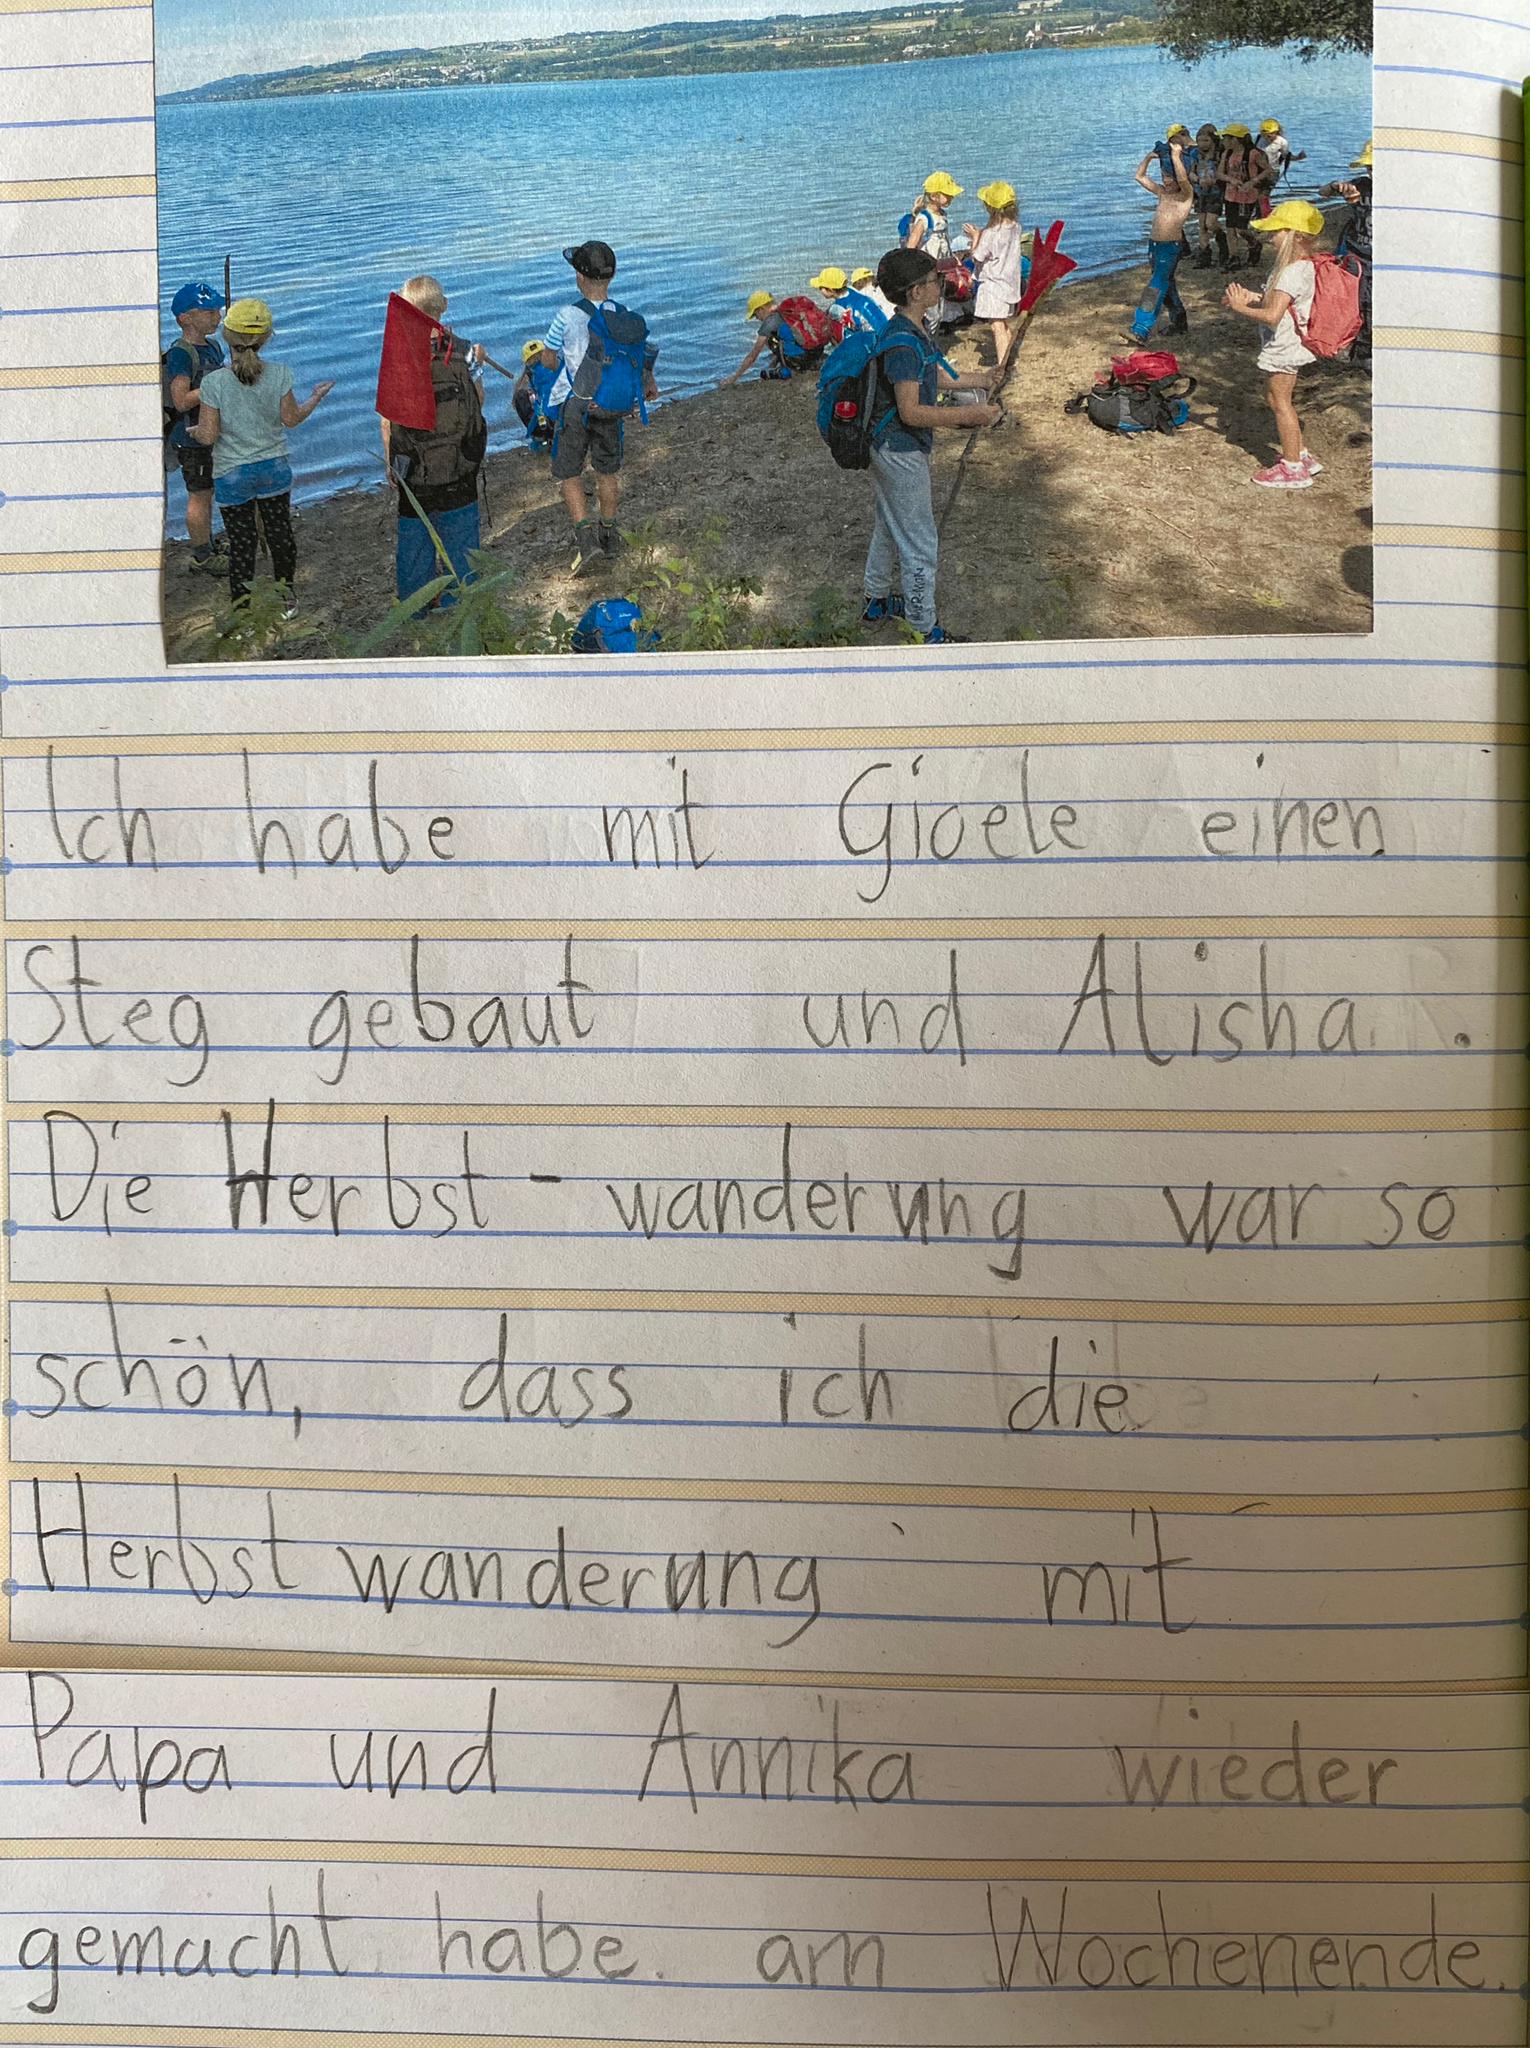 Ich habe mit Gioele einen
Steg gebaut und Alisha.
Die Herbst-wanderung war so
schön, dass ich die
Herbstwanderung mit
Papa und Annika wieder
gemacht habe. am Wochenende.